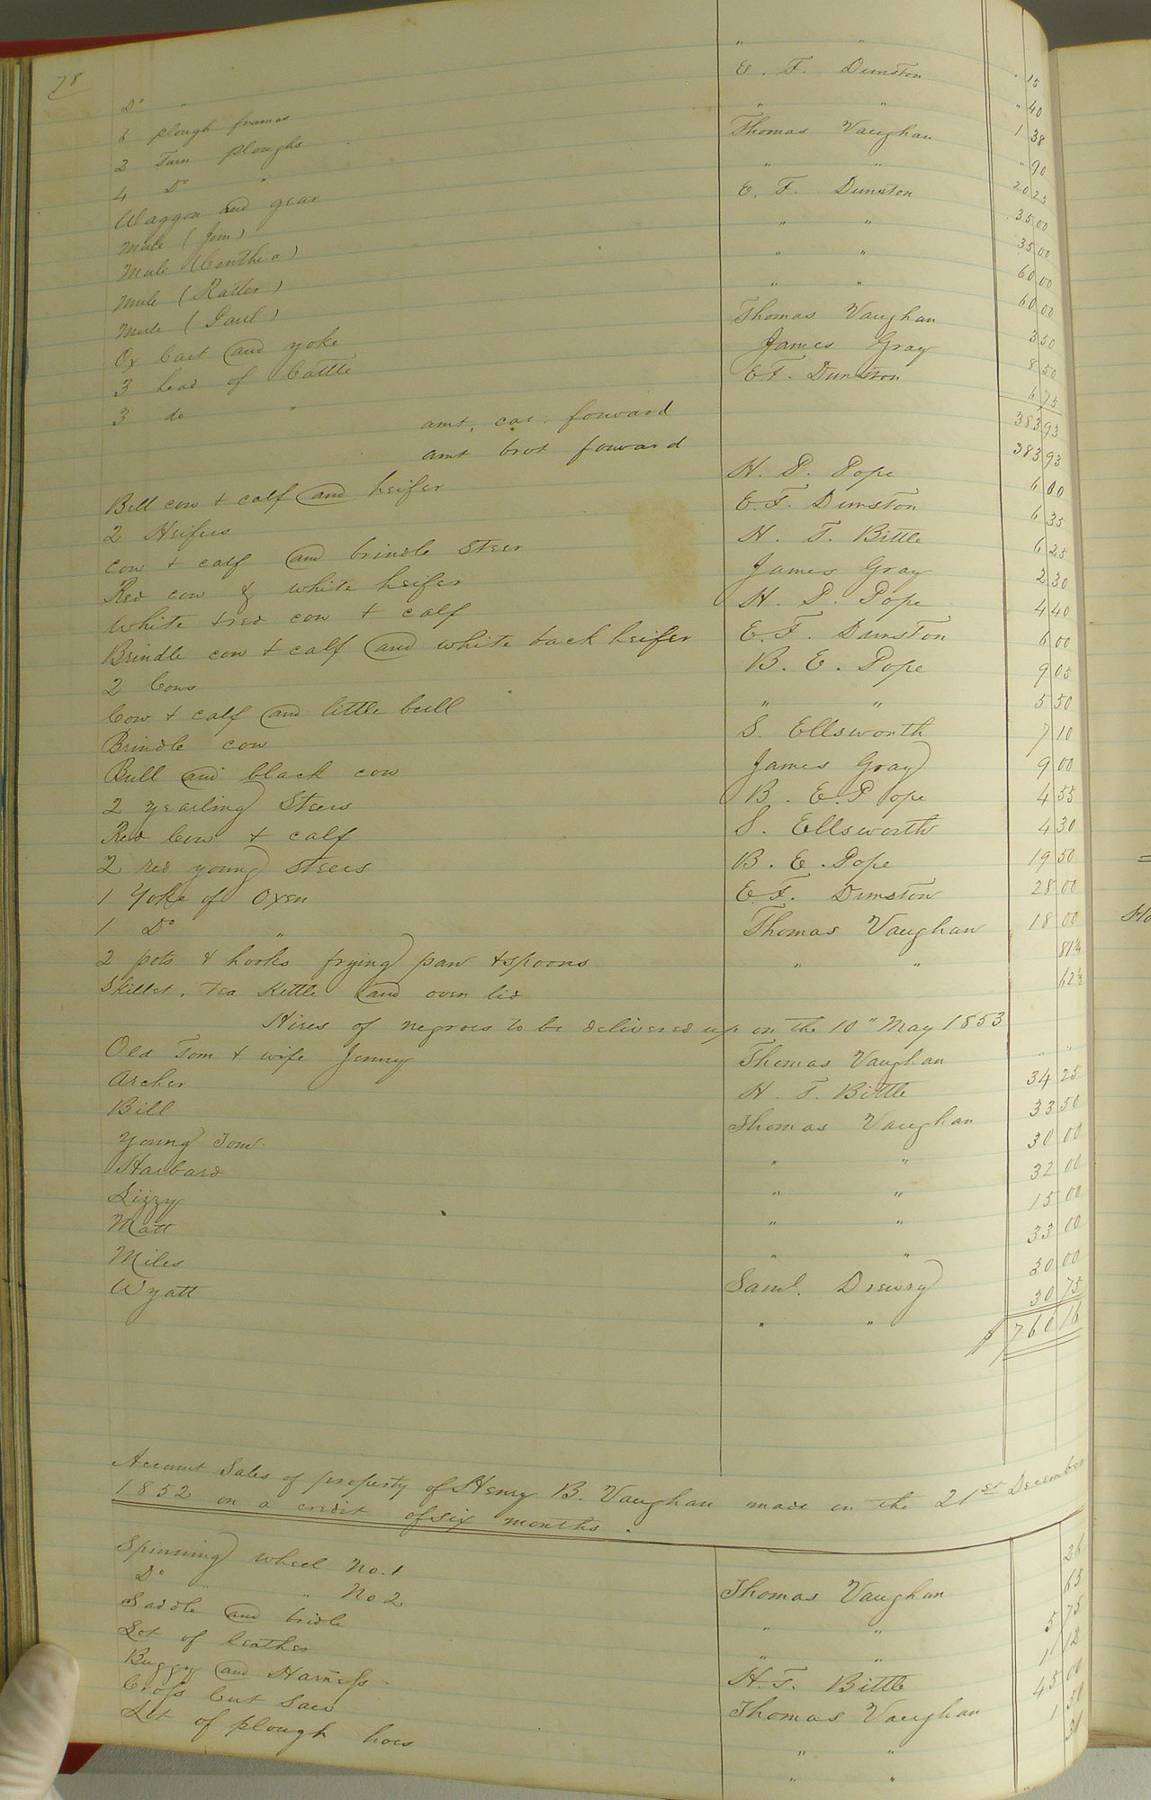 78
" "
Do " E. F. Dunston " 15
6 plough frames " " " 40
2 Turn ploughs Thomas Vaughan 1 38
4 Do " " " " 90
Waggon and gear E. F. Dunston 20 25
Mule (Jim) " " 35 00
Mule (Cinthia) " " 35 00
Mule " " 60 00
Mule (Paul) Thomas Vaughan 60 00
Ox Cart and yoke James Gray 3 50
3 head of Cattle E F. Dunston 8 50
3 do " 6 75
amt. car. forward 383 93
amt brot forward 383 93
Bell cow & calf and heifer H. P. Pope 6 00
2 Heifers E. F. Dunston 6 35
Cow & calf and brindle Steer H. T. Bittle 6 25
Red cow & white heifer James Gray 2 30
White & red cow & calf H. P. Pope 4 40
Brindle cow & calf and white back heifer E. F. Dunston 6 00
2 Cows B. E. Pope 9 05
Cow & calf and little bull " " 5 50
Brindle cow S. Ellsworth 7 10
Bull and black cow James Gray 9 00
2 yearling Steers B. E. Pope 4 55
Red Cow & calf S. Ellsworth 4 30
2 red young steers B. E. Pope 19 50
1 Yoke of Oxen E. F. Dunston 28 00
1 Do " Thomas Vaughan 18 00
2 pots & hooks frying pan & spoons " " 81¼
Skillet, Tea Kettle and oven lid 62½
Hires of negroes to be delivered up on the 10" May 1853
Old Tom & wife Jenny Thomas Vaughan " "
Archer H. T. Bittle 34 25
Bill Thomas Vaughan 33 50
Young Tom " " 30 00
Harbard " " 32 00
Lizzy " " 15 00
Matt " " 33 00
Miles Saml. Drewry 30 00
Wyatt " " 30 75
$ 760 16
Account Sales of property of Henry B. Vaughan made on the 21st December
1852 on a credit of six months.
Spinning wheel No. 1 Thomas Vaughan 26
Do " " No 2 " " 63
Saddle and bridle " " 5 75
Lot of leather H. T. Bittle 1 12
Buggy and Harness Thomas Vaughan 45 00
Cross Cut Saw " " 1 50
Lot of plough hoes " "